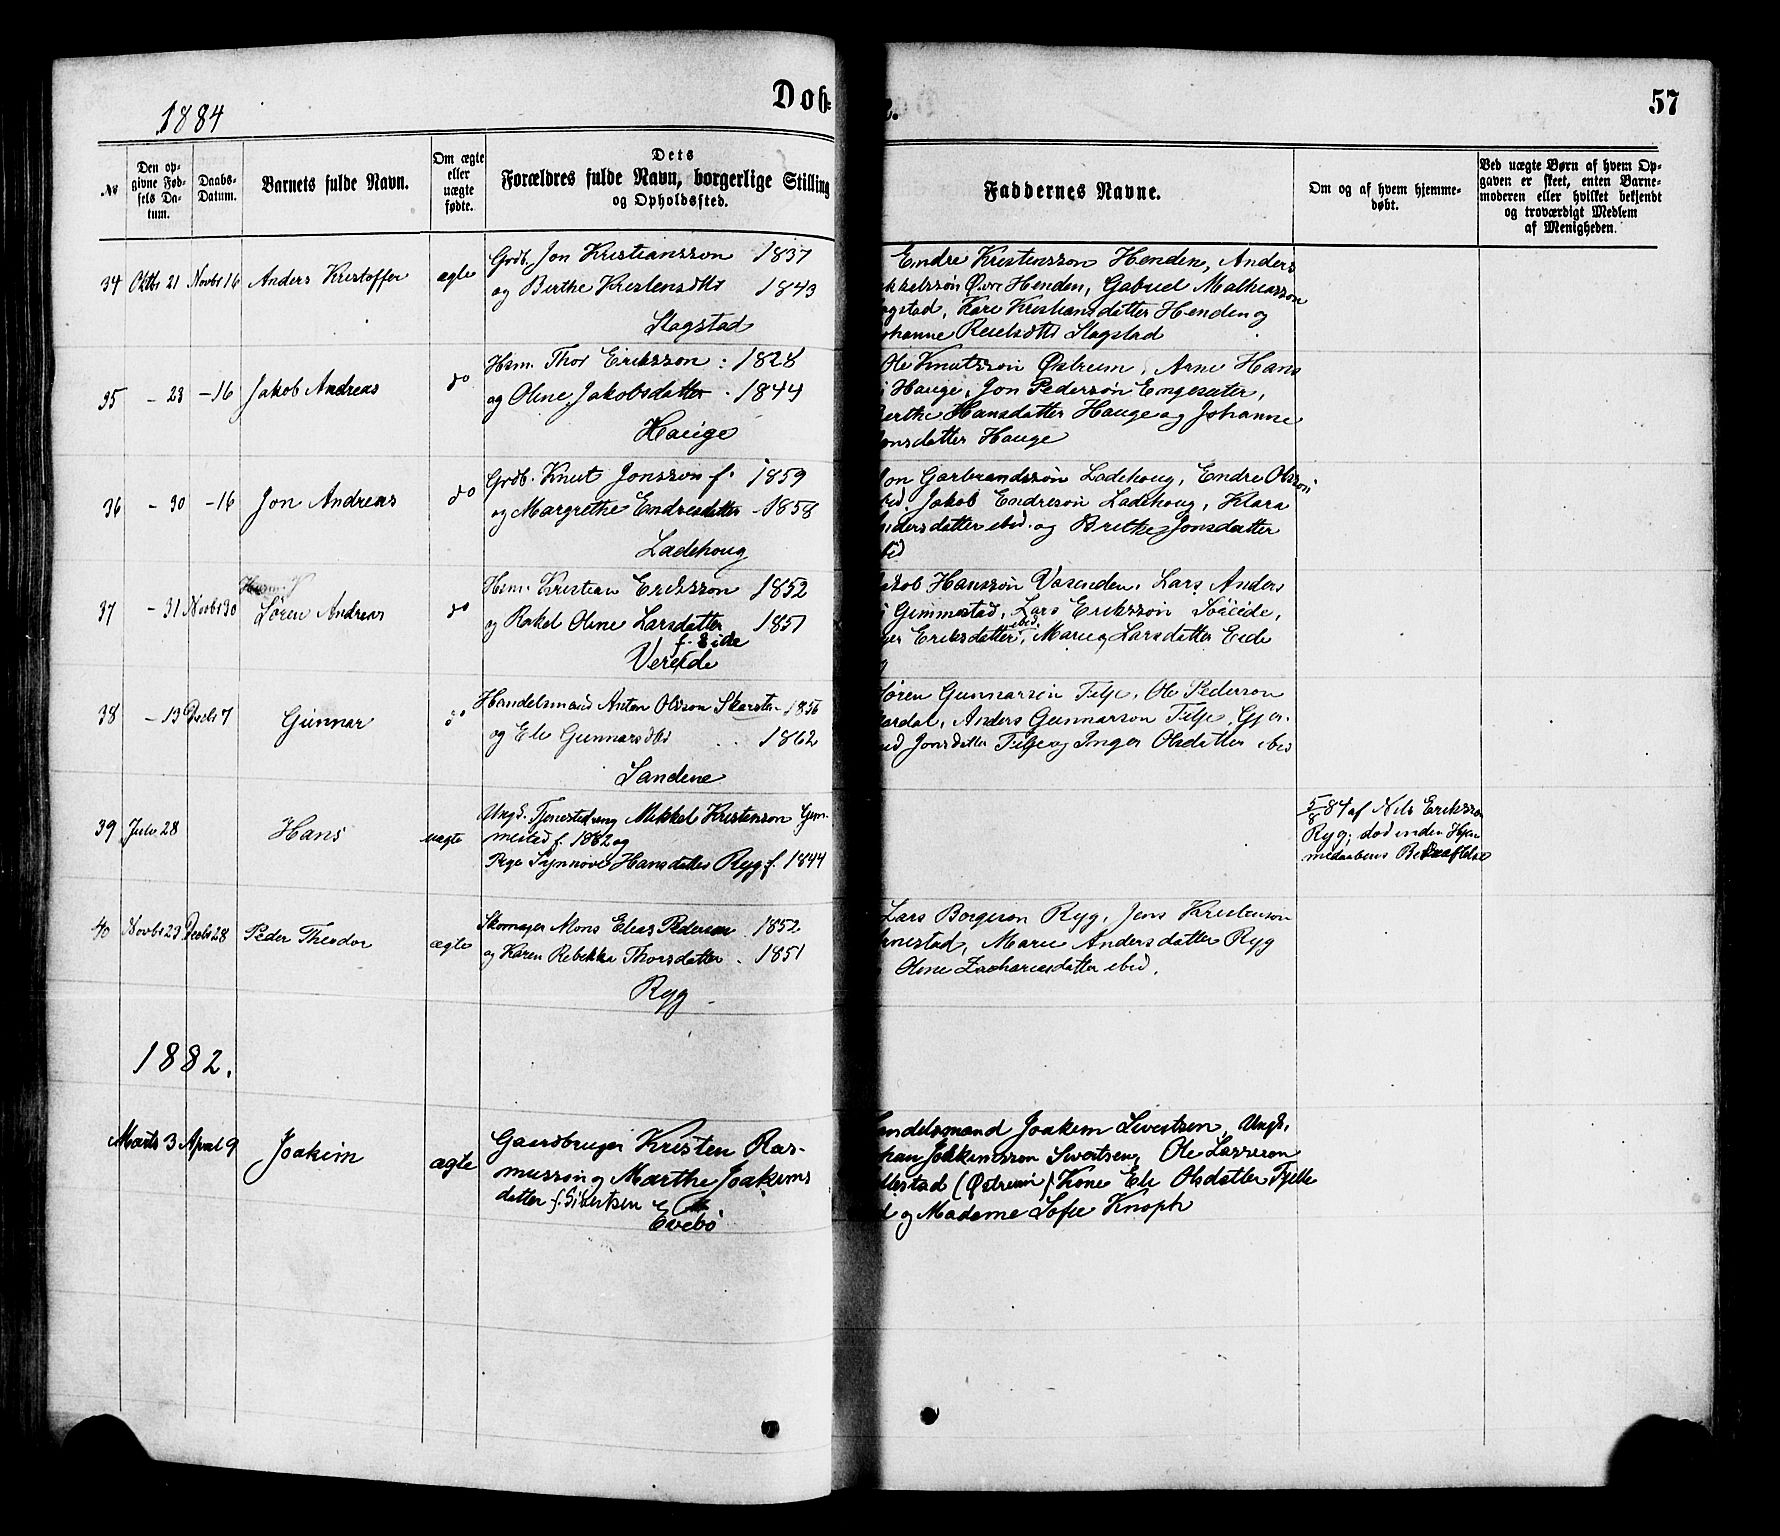 1884
Dob-
57
No
Den op-
givne Fød-
sels Da-
tum.
Daabs-
Datum.
Barnets fulde Navn.
Om ægte
eller
uægte
fødte.
Dets
Forældres fulde Navn, borgerlige Stilling
og Opholdssted.
Faddernes Navne.
Om og af hvem hjemme-
døbt.
Ved uægte Børn af hvem Op-
gaven er skeet, enten Barne-
moderen eller hvilket bekjendt
og troværdigt Medlem
af Menigheden.
34 Oktbr 21 Novbr 16 Anders Kristoffer ægte
Grdb. Jon Kristiansson 1837
og Berthe Kristensdtr 1843
Slagstad
Endre Kristensson Henden, Anders
kkelssøn Øvre Henden, Gabriel Mathiasson
agstad, Kari Kristiansdatter Henden og
ohanne Reielsdtr Slagstad
35 - 23 - 16 Jakob Andreas do
Hsm. Thor Eriksson 1828
og Oline Jakobsdatter 1844
Hauge
Ole Knutssøn Østrem, Arne Hans
Hauge, Jon Pederssøn Engeseter,
Berthe Hansdatter Hauge og Johanne
onsdatter Hauge
36 - 30 - 16 Jon Andreas do
Grdb. Knut Jonsson f. 1859
og Margrethe Endresdatter - 1858
Ladehoug
on Garbrandssøn Ladehoug, Endre Olsson
bid. Jakob Endresøn Ladehoug, Klara
ndersdatter ebid. og Brithe Jonsdatter
bid
37 - 31 Novbr 30 Søren Andreas do
Hsm. Kristian Eriksson 1852
og Rakel Oline Larsdatter 1851
f. Eide
Vereide
akob Hanssøn Vasenden, Lars Anders
Gimmestad, Lars Erikssøn Søreide,
ger Eriksdatter ebid, Marie Larsdatter Eide
38 - 13 Decbr 7 Gunnar do
Handelsmand Anton Olsson Skarsten 1856
og Eli Gunnarsdtr 1862
Sandene
Søren Gunnarsøn Felje, Ole Pederson
ardal, Anders Gunnarson Felje, Gjer-
ud Jonsdatter Felje og Inger Olsdatter ebid
39 Juli 28 Hans uægte
Ungd. Tjenestedreng Mikkel Kristenson Gim-
mestad f. 1862 og
Pige Synnøve Hansdatter Ryg f. 1844
5/8 84 af Nils Eriksson
Ryg; død inden Hjem
medaabens Bekræftelse
40 Novbr 23 Decbr 28 Peder Theodor ægte
Skomager Mons Elias Pederson 1852
og Karen Rebekka Thorsdatter 1851
Ryg
Lars Borgeson Ryg, Jens Kristenson
nestad, Marie Andersdatter Ryg
Oline Zachariasdatter ebid.
1882.
Marts 3 April 9 Joakim ægte
Gaardbruger Kristen Ras-
mussøn og Marthe Joakims
datter f. Sivertsen
Evebø
andelsmand Joakim Sivertsen, Ungk.
han Joakimsson Sivertsen, Ole Larsson
llestad (Østreim) Kone Eli Olsdatter Fjelle
d og Madame Sofie Knoph